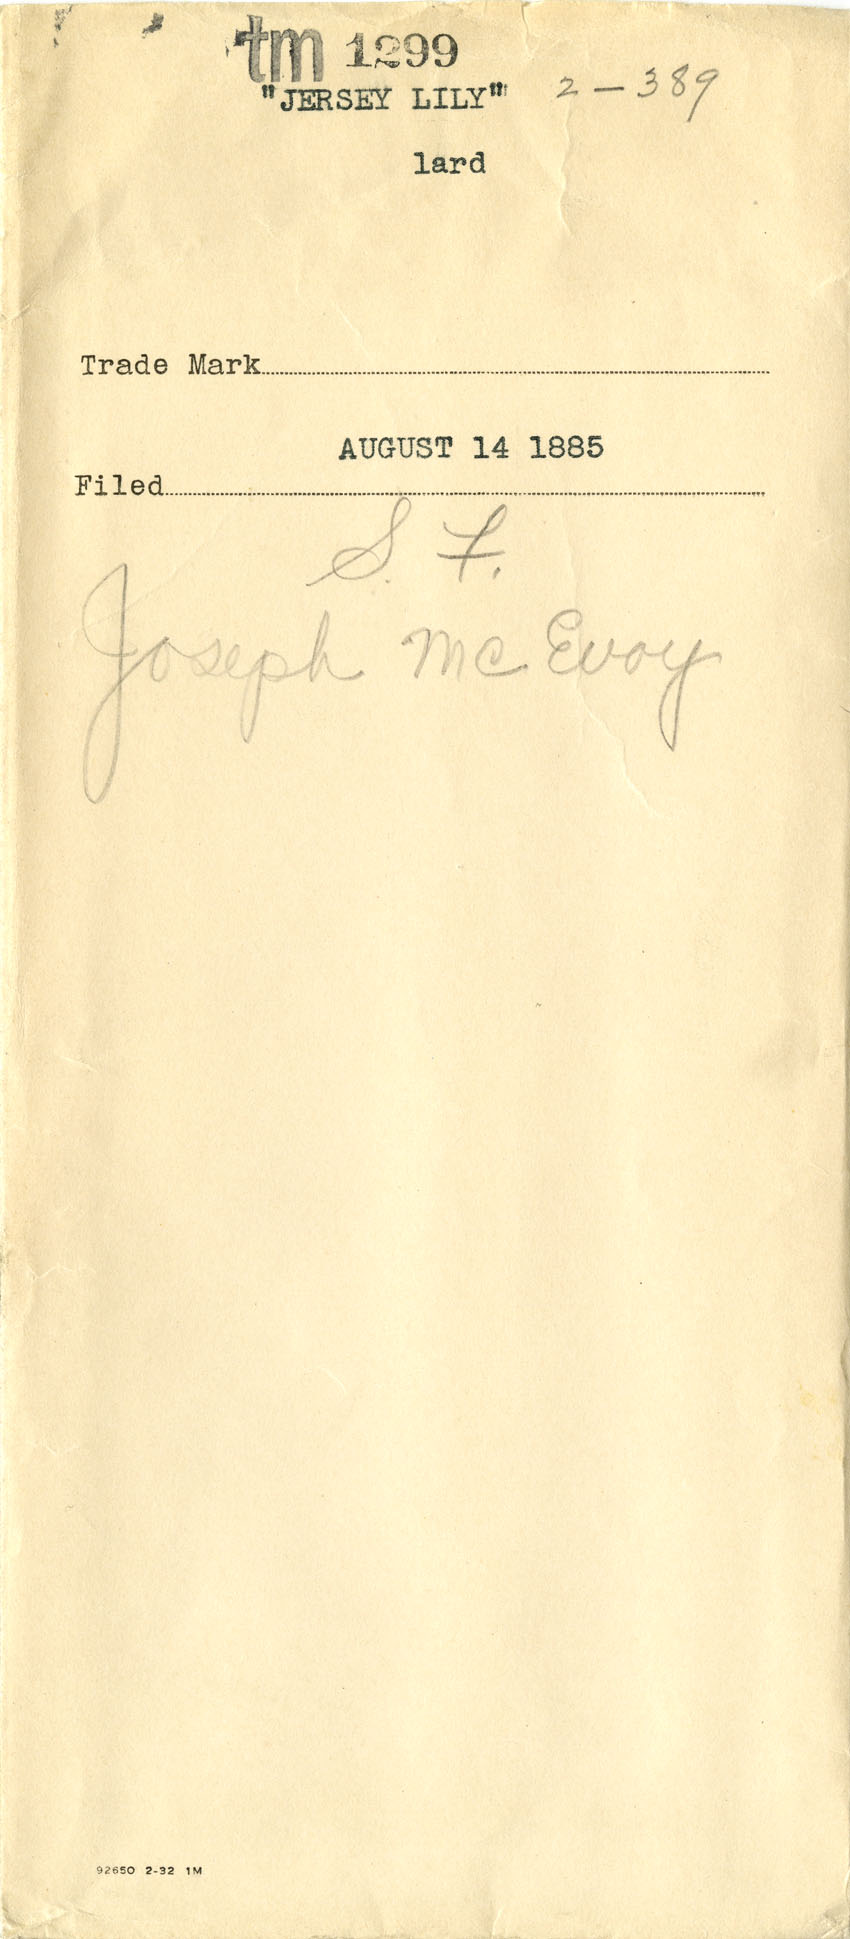 tm 1299
"JERSEY LILY"" 2-389
lard
Trade Mark
AUGUST 14 1885
Filed
S. F.
Joseph McEvoy
92650 2-32 1M